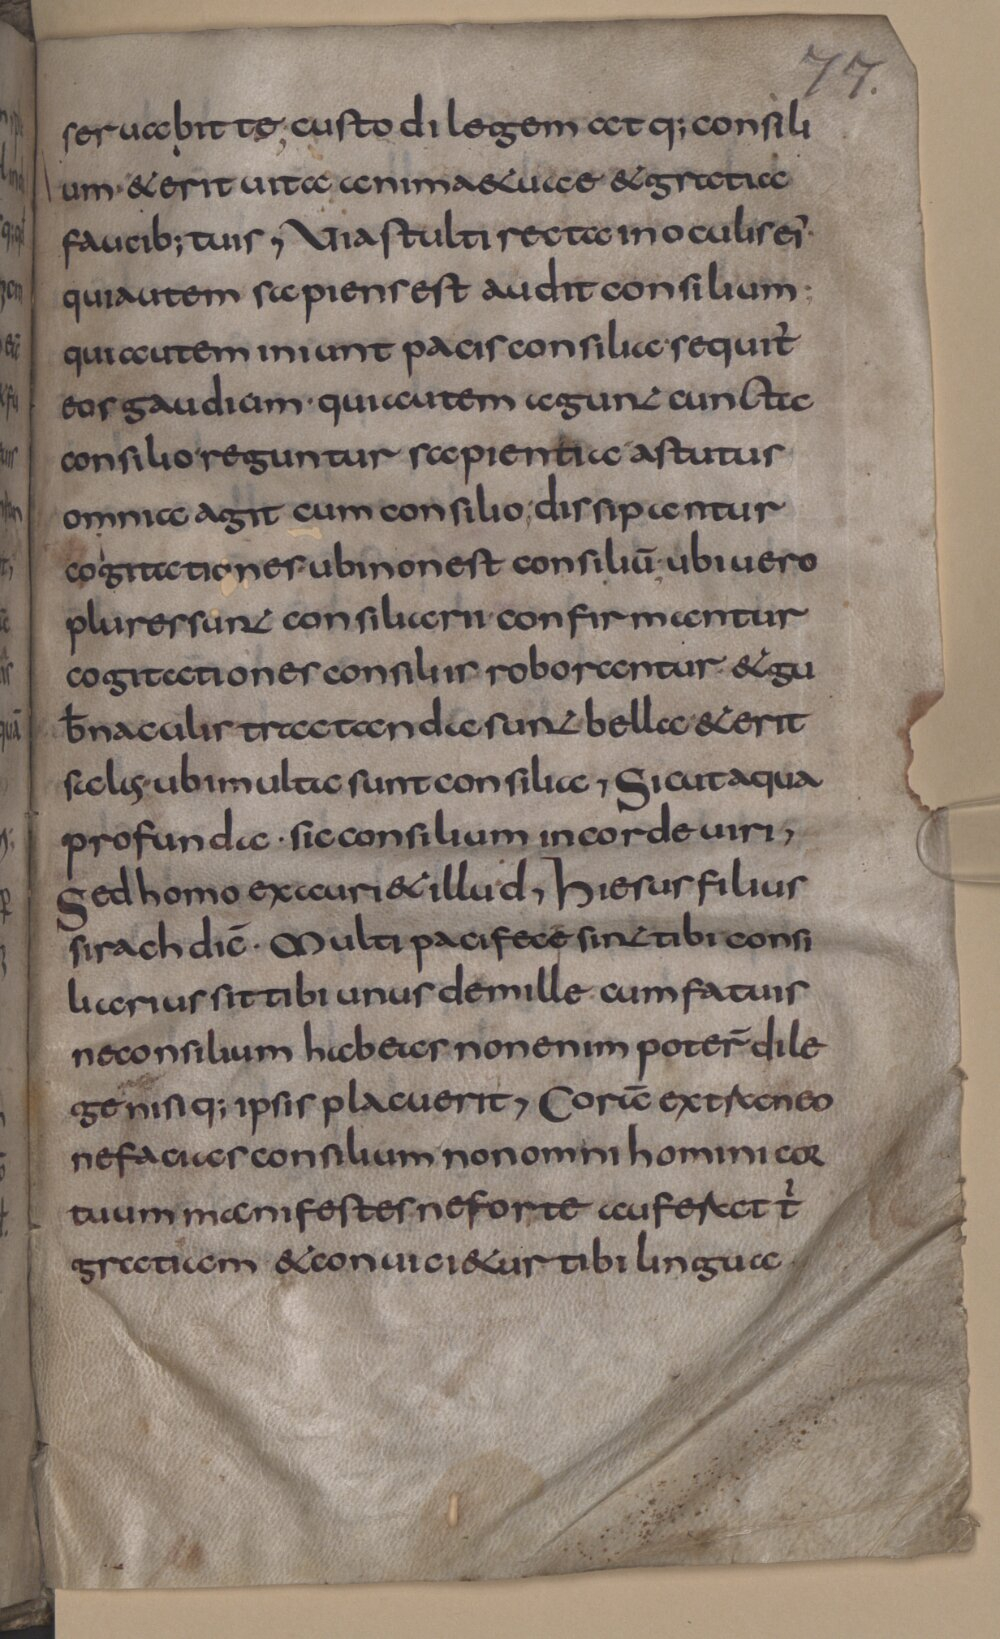 77.
seruabit te; custodi legem atq; consili
um· & erit uita anima& uae & gratia
faucib; tuis, Uia stulti recta in oculis ei'·
qui autem sapiens est audit consilium;
qui autem iniunt pacis consilia· sequit̉
eos gaudium· qui autem agunt cuncta
consilio· reguntur sapientia astutus
omnia agit cum consilio; dissipantur
cogitationes· ubi non est consiliū· ubi uero
plures sunt consiliarii· confirmantur
cogitationes consiliis roborantur· & gu
b̄naculis tractanda sunt bella & erit
salus· ubi multa sunt consilia, Sicut aqua
profunda· sic consilium in corde uiri,
Sed homo exauri& illud, Hiesus filius
sirach dic̄· Multi pacifece sint tibi consi
liarius sit tibi unus de mille· cum fatuis
ne consilium habeas non enim poter̄ dile
ge nisi q; ipsis placuerit, Corā extraneo
ne facias consilium non omni homini cor
tuum manifestes ne forte auferat t̉
gratiam & conuici&ur tibi lingua